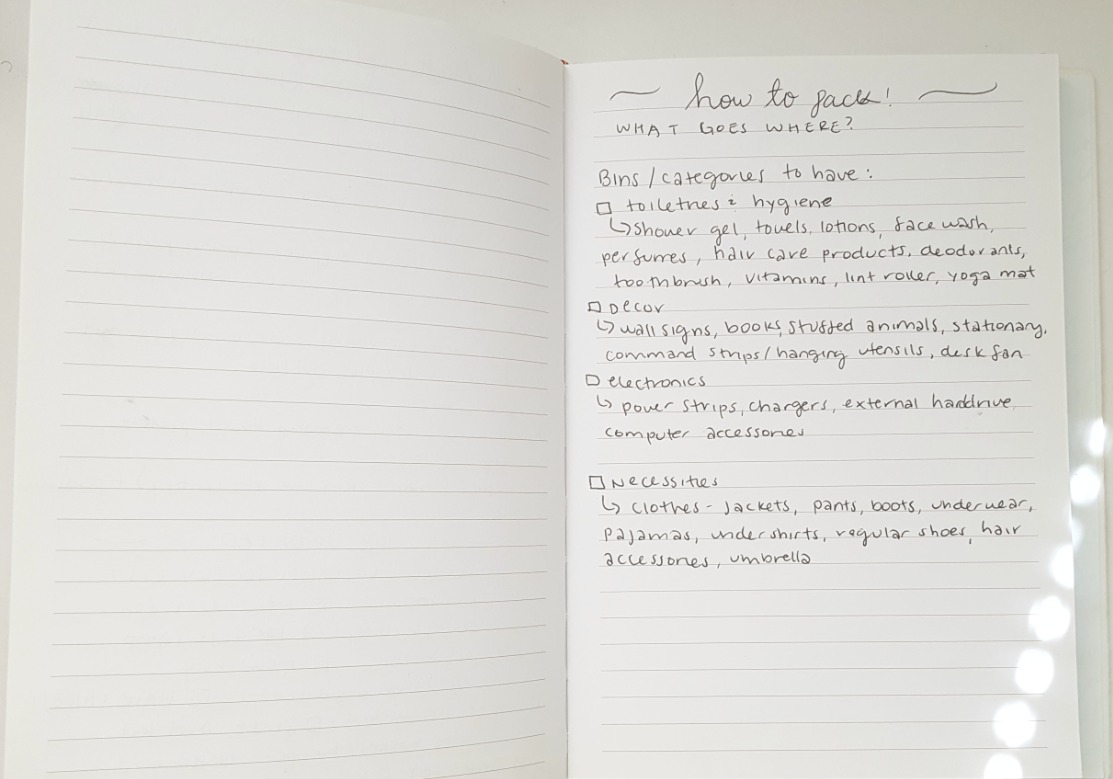 how to pack!
WHAT GOES WHERE?
Bins/categories to have:
toiletries & hygiene
↳ shower gel, towels, lotions, face wash,
perfumes, hair care products, deodorants,
toothbrush, vitamins, lint roller, yoga mat
Decor
↳ wall signs, books, stuffed animals, stationary,
command strips/hanging utensils, desk fan
electronics
↳ power strips, chargers, external harddrive
computer accessories
Necessities
↳ clothes - jackets, pants, boots, underwear,
pajamas, undershirts, regular shoes, hair
accessories, umbrella